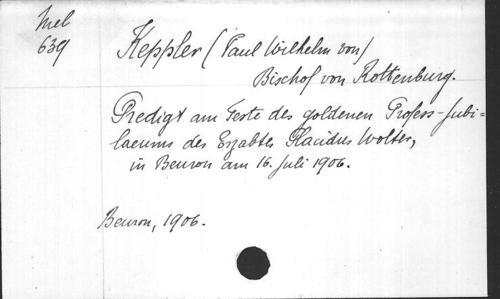 Mel
639
Keppler (Paul Wilhelm von)
Bischof von Rottenburg.
Predigt am Feste des goldenen Profess-Jubi=
laeums des Erzabtes Placidus Wolter,
in Beuron am 16. Juli 1906.
Beuron, 1906.